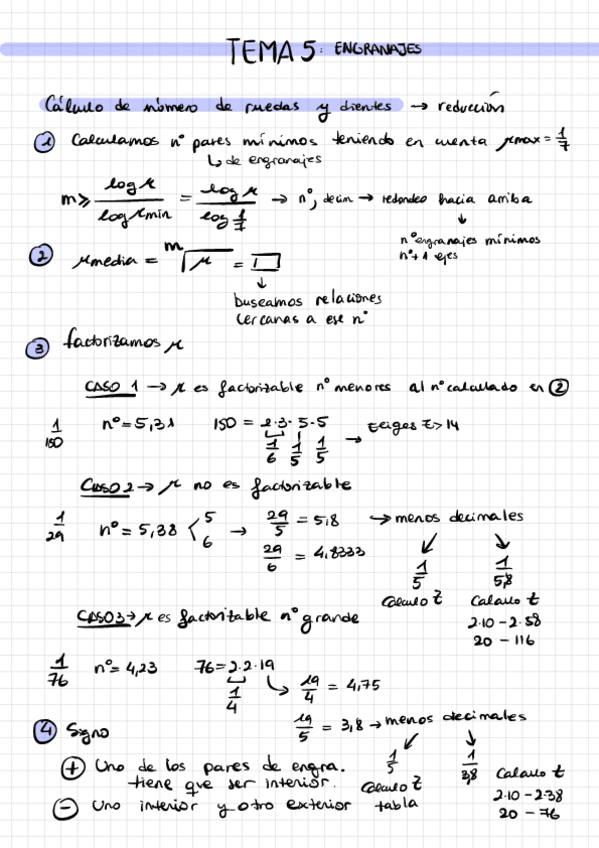 TEMA 5: ENGRANAJES
Cálculo de número de ruedas y dientes → reducción
1 Calculamos nº pares mínimos teniendo en cuenta μmax = 1/7
↳ de engranajes
m ≥ log μ / log μmin = log μ / log 1/7 → nº, decim → redondeo hacia arriba
↓
nº engranajes mínimos
nº + 1 ejes
2 μmedia = m√μ = □
↓
buscamos relaciones
cercanas a ese nº
3 factorizamos μ
CASO 1 → μ es factorizable nº menores al nº calculado en 2
1/150 nº = 5,31 150 = 2·3·5·5 → Eeiges Z > 14
1/6 1/5 1/5
CASO 2 → μ no es factorizable
1/29 nº = 5,38 < 5 6 → 29/5 = 5,8 → menos decimales
29/6 = 4,8333
1/5 1/5,8
Calculo Z Calculo Z
2·10 - 2·58
20 - 116
CASO 3 → μ es factorizable nº grande
1/76 nº = 4,23 76 = 2·2·19
1/4 ↳ 19/4 = 4,75
19/5 = 3,8 → menos decimales
1/5 1/3,8
Calculo Z Calculo Z
tabla 2·10 - 2·38
20 - 76
4 Signo
+ Uno de los pares de engra.
tiene que ser interior.
- Uno interior y otro exterior